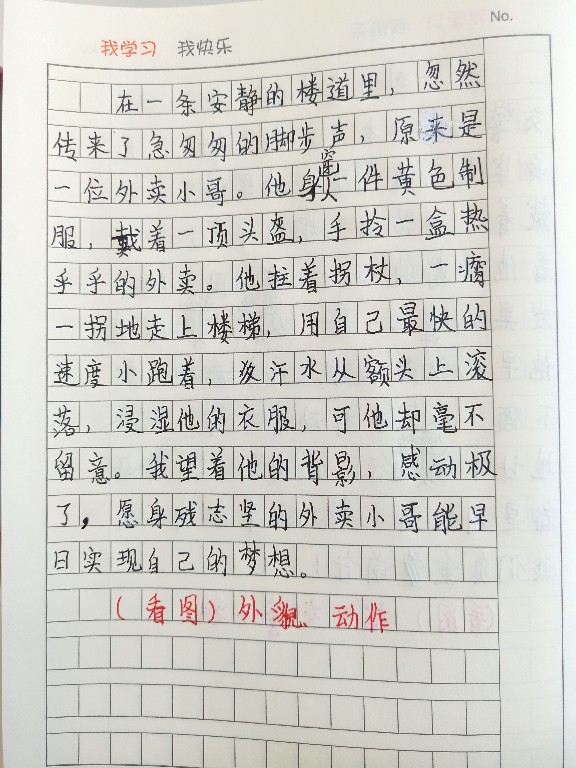 No.
我学习 我快乐
在一条安静的楼道里，忽然
传来了急匆匆的脚步声，原来是
一位外卖小哥。他身穿一件黄色制
服，戴着一顶头盔，手拎一盒热
乎乎的外卖。他拄着拐杖，一瘸
一拐地走上楼梯，用自己最快的
速度小跑着，汗水从额头上滚
落，浸湿他的衣服，可他却毫不
留意。我望着他的背影，感动极
了，愿身残志坚的外卖小哥能早
日实现自己的梦想。
（看图）外貌、动作